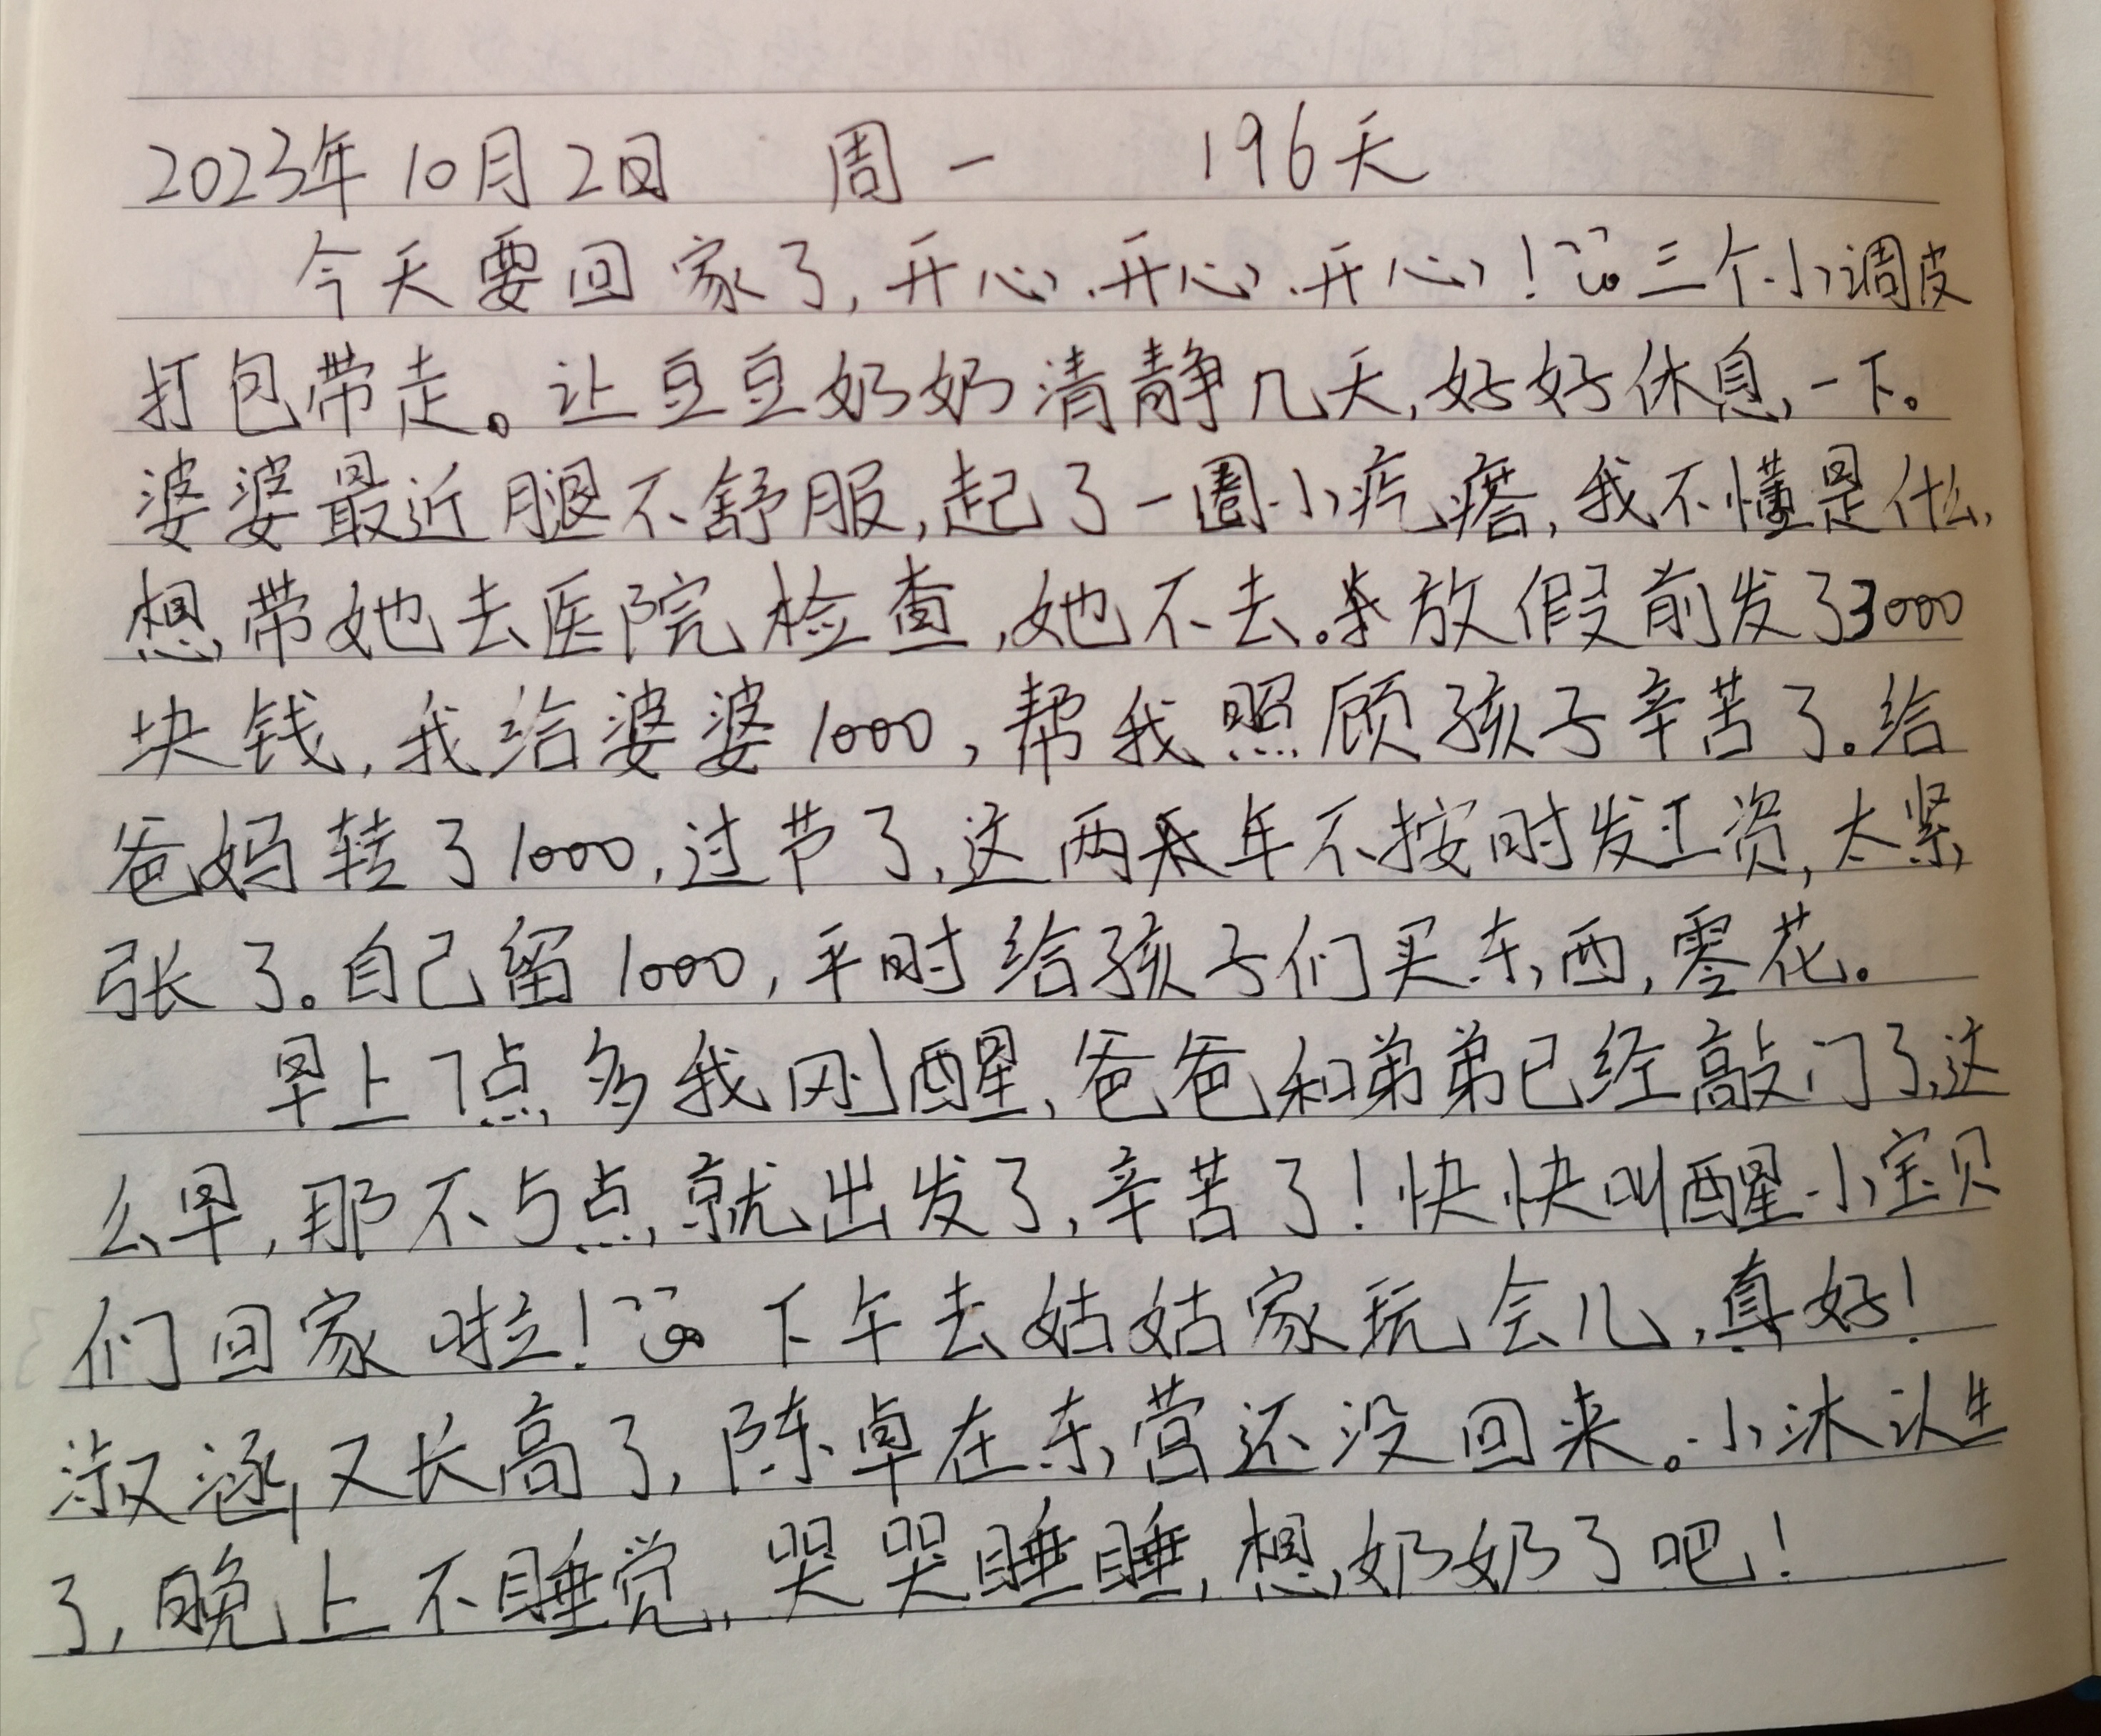 2023年10月2日 周一 196天
今天要回家了,开心、开心、开心!三个小调皮
打包带走。让豆豆奶奶清静几天,好好休息一下。
婆婆最近腿不舒服,起了一圈小疙瘩,我不懂是什么,
想带她去医院检查,她不去。放假前发了3000
块钱,我给婆婆1000,帮我照顾孩子辛苦了。给
爸妈转了1000,过节了,这两年不按时发工资,太紧
张了。自己留1000,平时给孩子们买东西,零花。
早上7点多我刚醒,爸爸和弟弟已经敲门了,这
么早,那不5点就出发了,辛苦了!快快叫醒小宝贝
们回家啦!下午去姑姑家玩会儿,真好!
淑涵又长高了,陈卓在东营还没回来。小沐认生
了,晚上不睡觉,哭哭睡睡,想奶奶了吧!